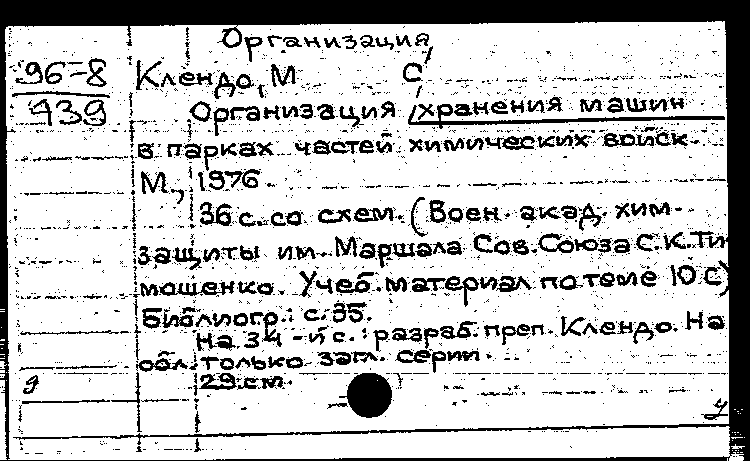 Организация
96-8 Клендо, М С
939 Организация хранения машин
в парках частей химических войск.
М., 1976.
36 с. со схем. (Воен. акад. хим-
защиты им. Маршала Сов. Союза С. К. Ти
мошенко. Учеб. материал по теме 10 с)
Библиогр.: с. 35.
На 34-й с.: разраб. преп. Клендо. На
обл. только загл. серии.
29 см.